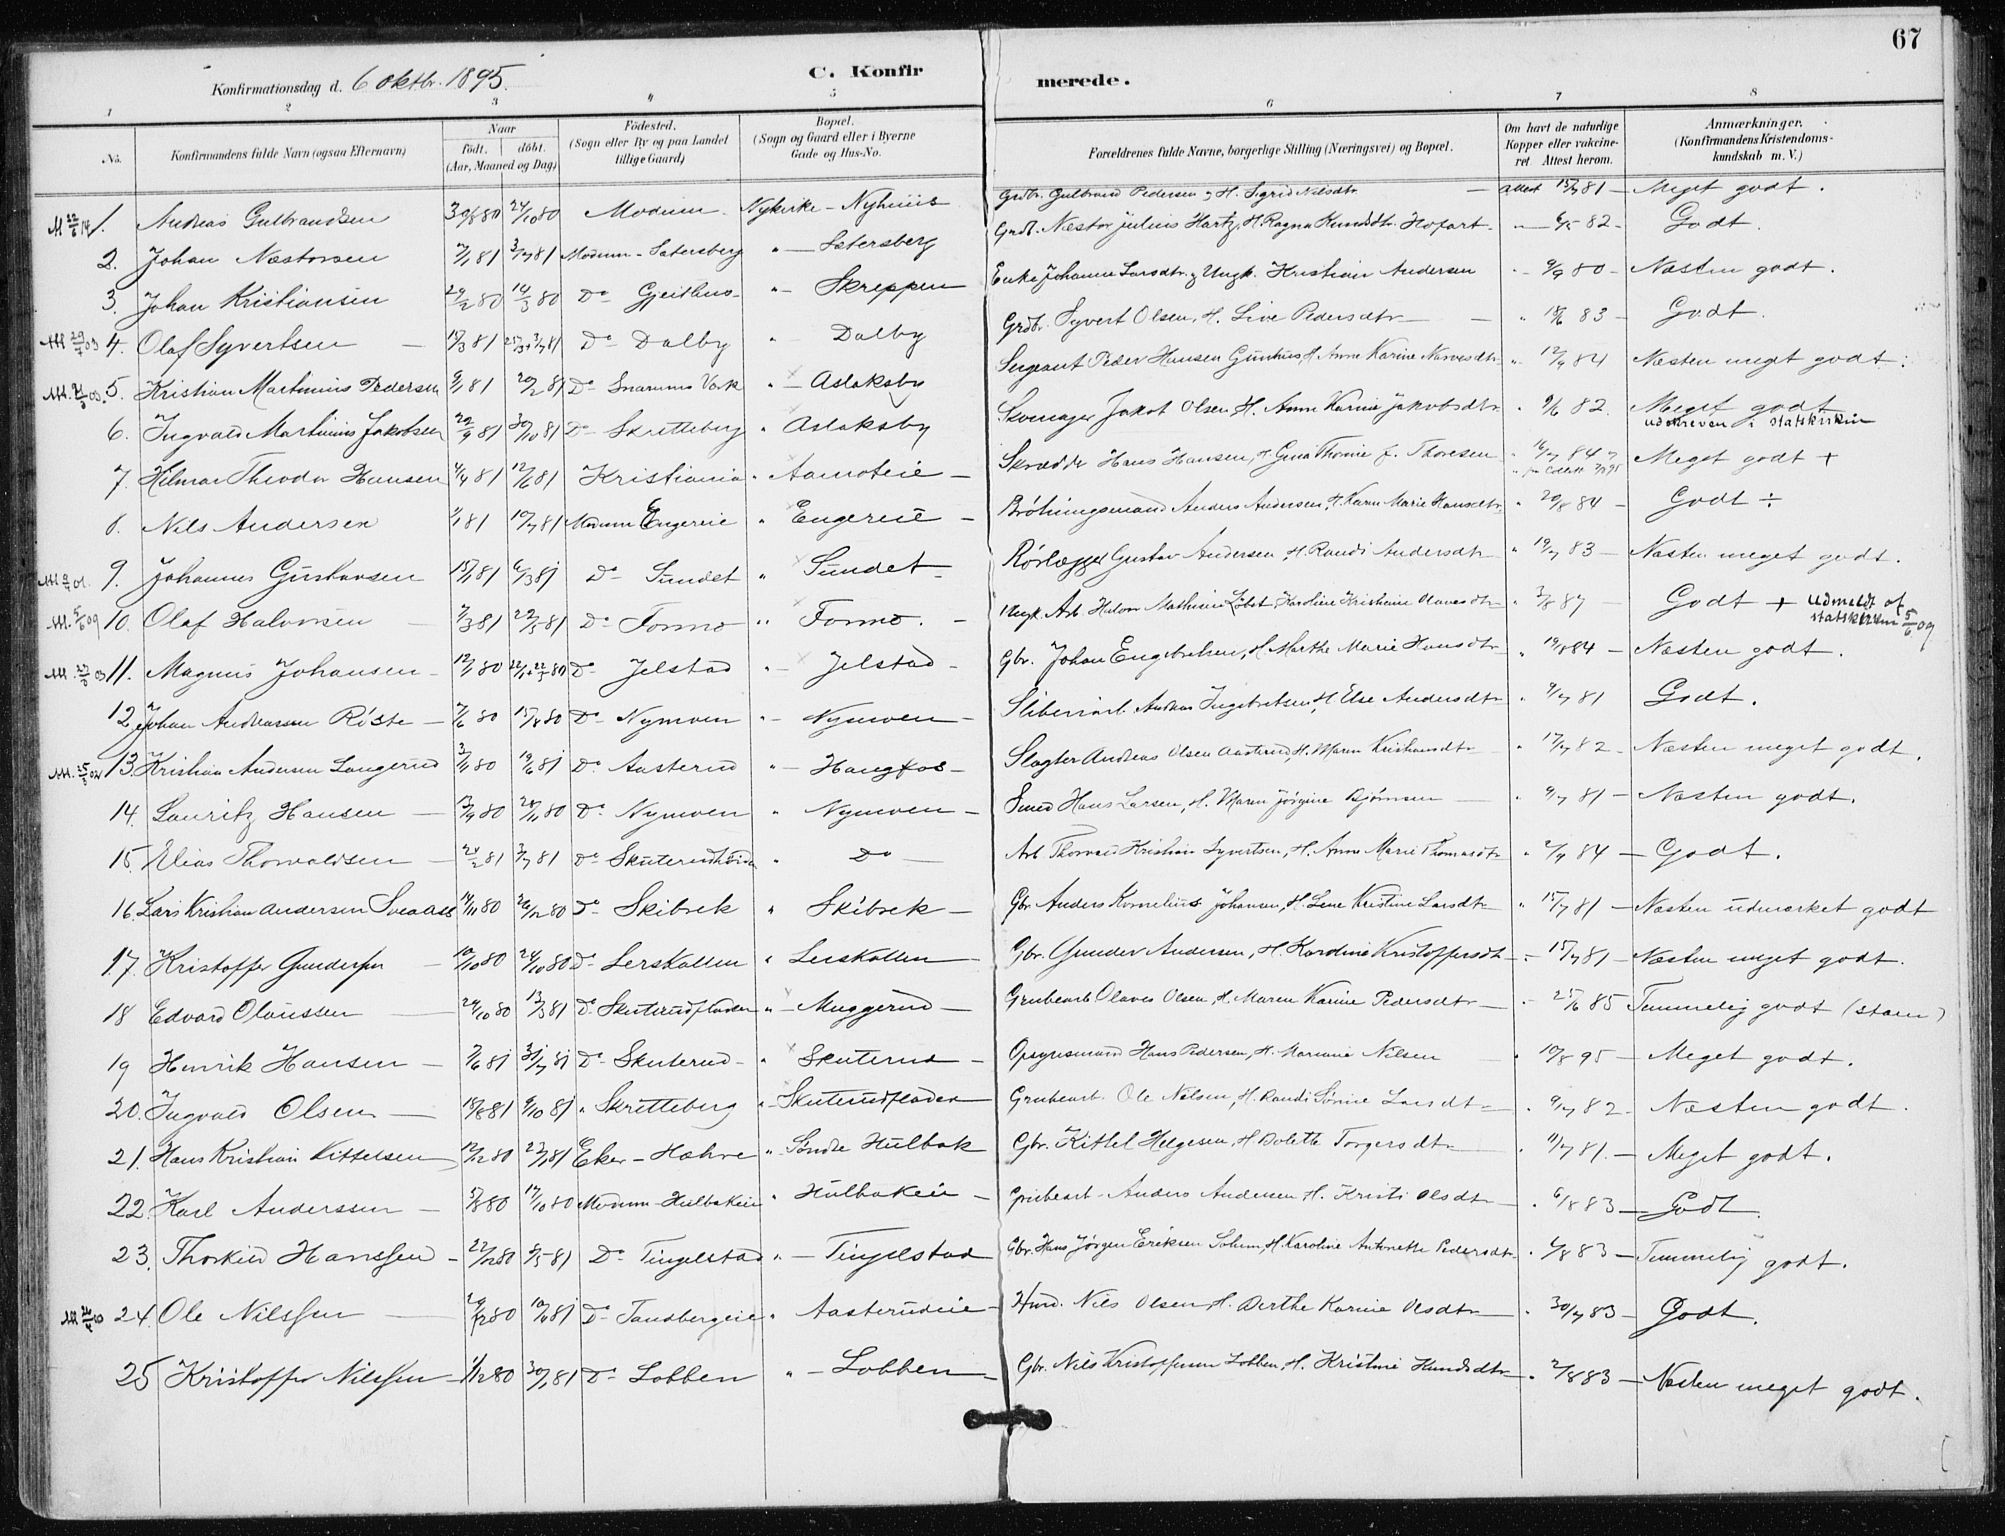 67
Konfirmationsdag d. 6 oktbr. 1895. C. Konfirmerede.
1 2 3 4 5 6 7 8
No. Konfirmandens fulde Navn (ogsaa Efternavn) Naar født. døbt. (Aar, Maaned og Dag) Fødested. (Sogn eller By og paa Landet tillige Gaard) Bopæl. (Sogn og Gaard eller i Byerne Gade og Hus-No. Forældrenes fulde Navne, borgerlige Stilling (Næringsvei) og Bopæl. Om havt de naturlige Kopper eller vaccineret Attest herom. Anmærkninger. (Konfirmandens Kristendomskundskab m. V.)
1. Andreas Gulbrandsen 80 24/10 80 Modum Nykirke - Nyhuus Grdbr. Gulbrand Pedersen og H. Sigrid Nilsdtr. Attest 81 - Meget godt.
2. Johan Næstorsen 81 3/7 81 Modum - Sætersberg " - Sætersberg Grdb. Næstor Julius Hartz, H. Ragna Knudsdtr. Hofart - 6/5 82 - Godt.
3. Johan Kristiansen 29/2 80 16/5 80 Do Gjeithus - " Skreppen Enke Johanne Larsdtr. og Ungk. Kristian Andersen 9/9 80 - Næsten godt.
4. Olaf Syvertsen 3 81 Do Dalby " Dalby Grdbr. Syvert Olsen, H. Live Pedersdtr. " 83 - Godt.
5. Kristian Martinius Pedersen 9/1 81 20/2 81 Do Snarums Værk " - Aslaksby Sergeant Peder Hansen H. Anne Karine " 12/9 84 Næsten meget godt.
6. Ingvald Martinius Jakobsen 22/9 81 30/10 81 Do Skretteberg " Aslaksby Skomager Jakob Olsen, H. Anne Karine Jakobsdtr. " 9/6 82. Meget godt
udskreven i statskirken
7. Hilmar Theodor Hansen 4/4 81 12/6 81 Kristiania " Aamoteie - Skrædder Hans Hansen, H. Gina Thomine f. Thoresen " 16/7 84 Meget godt +
8. Nils Andersen 81 10/7 81 Modum Engereie " Engereie - Brøtningsmand Anders Andersen, H. Karen Marie Hansdtr. " 20/8 84 - Godt ÷
9. Johannes Gustavsen 15/1 81 6/3 81 Do Sundet " Sundet - Rørlægger Gustav Andersen, H. Randi Andersdtr. " 19/7 83 - Næsten meget godt.
10. Olaf Halvorsen 7/3 81 22/5 81 Do Formo " Formo. - Ungk. Arb. Halvor Mathisen Løbst, Karoline Kristine Olavesdtr. " 3/8 87 - Godt + udmeldt af statskirken 5/6 09
11. Magnus Johansen 12/1 80 Do Jelstad " - Jelstad - Gbr. Johan Engebretsen, H. Marthe Marie Hansdtr. " 19/8 84 - Næsten godt.
12. Johan Andreassen Røste 7/6 80 15/8 80 Do Nymoen " - Nymoen - Sliberiarb. Andreas Ingebretsen, H. Else Andersdtr. " 9/7 81 Godt.
13. Kristian Andersen Langerud 3/11 80 19/6 81 Do Aasterud " - Haugfos - Slagter Andreas Olsen Aasterud, H. Maren Kristiansdtr. " 17/7 82 - Næsten meget godt.
14. Lauritz Hansen 13/9 80 28/11 80 Do Nymoen " Nymoen - Smed Hans Larsen, H. Maren Jørgine Bjørnsen " 9/7 81 - Næsten godt.
15. Elias Thorvaldsen 24/2 81 3/7 81 Do " Do Arb. Thorvald Kristian Syvertsen, H. Anne Marie Thomasdtr. " 2/9 84 - Godt.
16. Lars Kristian Andersen Sveaas 14/11 80 26/12 80 Do Skibrek " Skibrek - Gbr. Anders Kornelius Johansen, H. Lene Kristine Larsdtr. " 15/7 81 - Næsten udmærket godt
17. Kristoffer Gundersen 10/10 80 24/10 80 Do Lerskallen " Lerskallen - Gbr. Gunder Andersen, H. Karoline Kristoffersdtr. " 15/7 81 - Næsten meget godt.
18 Edvard Olaussen 24/10 80 13/3 81 Do Skuterudfladen " - Muggerud - Grubearb. Olaves Olsen, H. Maren Karine Pedersdtr. " 25/6 85 Temmelig godt (stam)
19 Henrik Hansen 7/6 81 31/7 81 Do Skuterud - " Skuterud - Opsynsmand Hans Pedersen, H. Mariane Nilsen " 10/8 95 - Meget godt.
20. Ingvald Olsen 18/8 81 9/10 81 " Skretteberg " - Skuterudfladen Grubearb. Ole Nilsen, H. Randi Sørine Larsdtr. " 9/7 82 - Næsten godt.
21. Hans Kristian Kittelsen 12/12 80 23/1 81 Eker - Hæhre " Søndre Hulbak Gbr. Kittel Helgesen, H. Dolette Torgersdtr. " 11/7 81. - Meget godt.
22. Karl Anderssen 5/8 80 17/10 80 Modum - Hulbakeie " Hulbakeie - Grubearb. Anders Andersen H. Kristi Olsdtr. " 6/8 83 - Godt.
23. Thorkild Hanssen 22/12 80 8/5 81 Do Tingelstad " - Tingelstad Gbr. Hans Jørgen Eriksen Solum, H. Karoline Antonette Pedersdtr. " 6/8 83 - Temmelig godt.
24. Ole Nilssen 29/12 80 10/6 81 Do Tandbergeie " Aasterudeie - Husd. Nils Olsen, H. Berthe Karine Olsdtr. " 30/7 83 - Godt.
25 Kristoffer Nilssen 1/12 80 30/1 81 Do Lobben " - Lobben - Gbr. Nils Kristoffersen Lobben, H. Kristine Hansdtr. " 2/8 83 - Næsten meget godt.